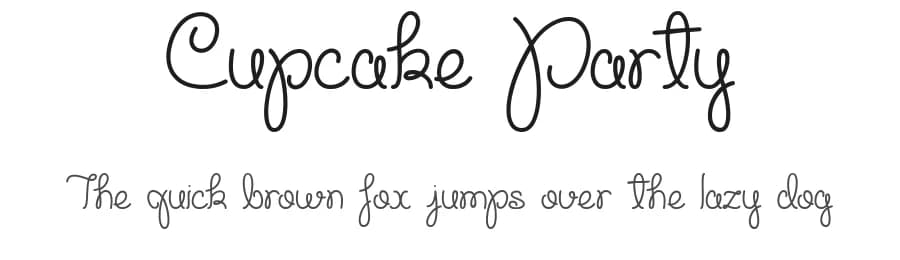 Cupcake Party
The quick brown fox jumps over the lazy dog